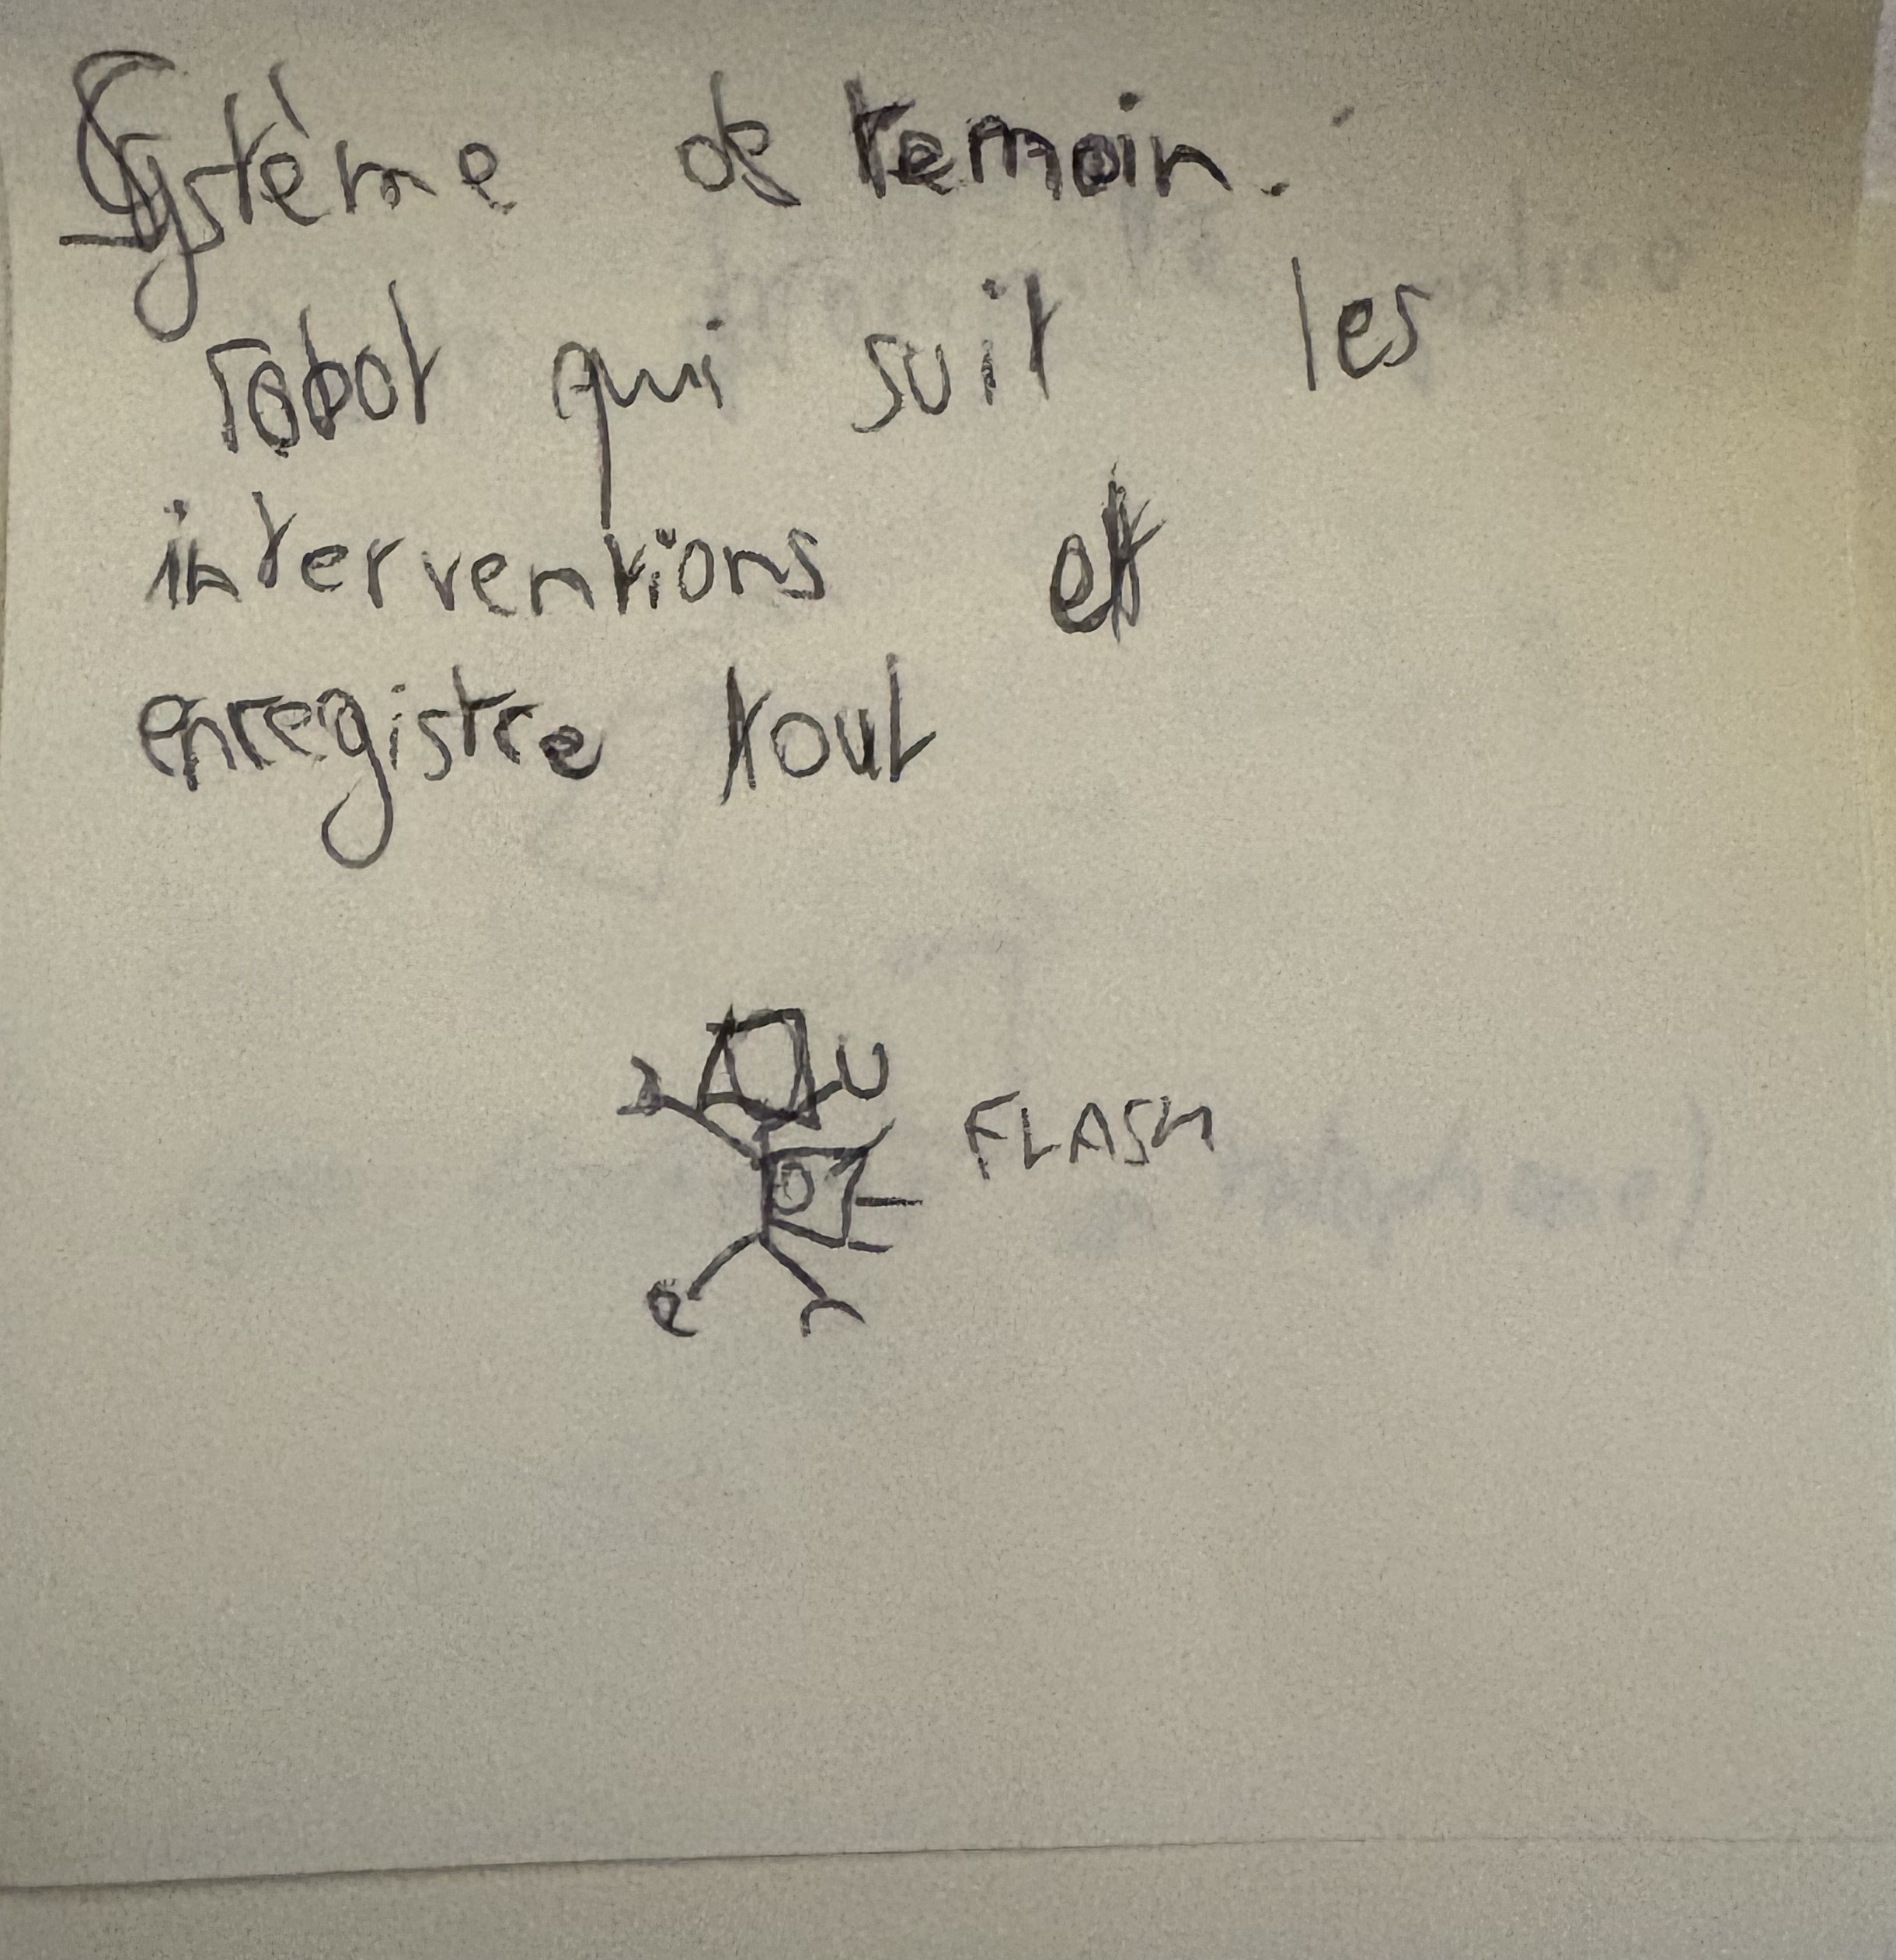 Système de temoin.
robot qui suit les
interventions et
enregistre tout
FLASH